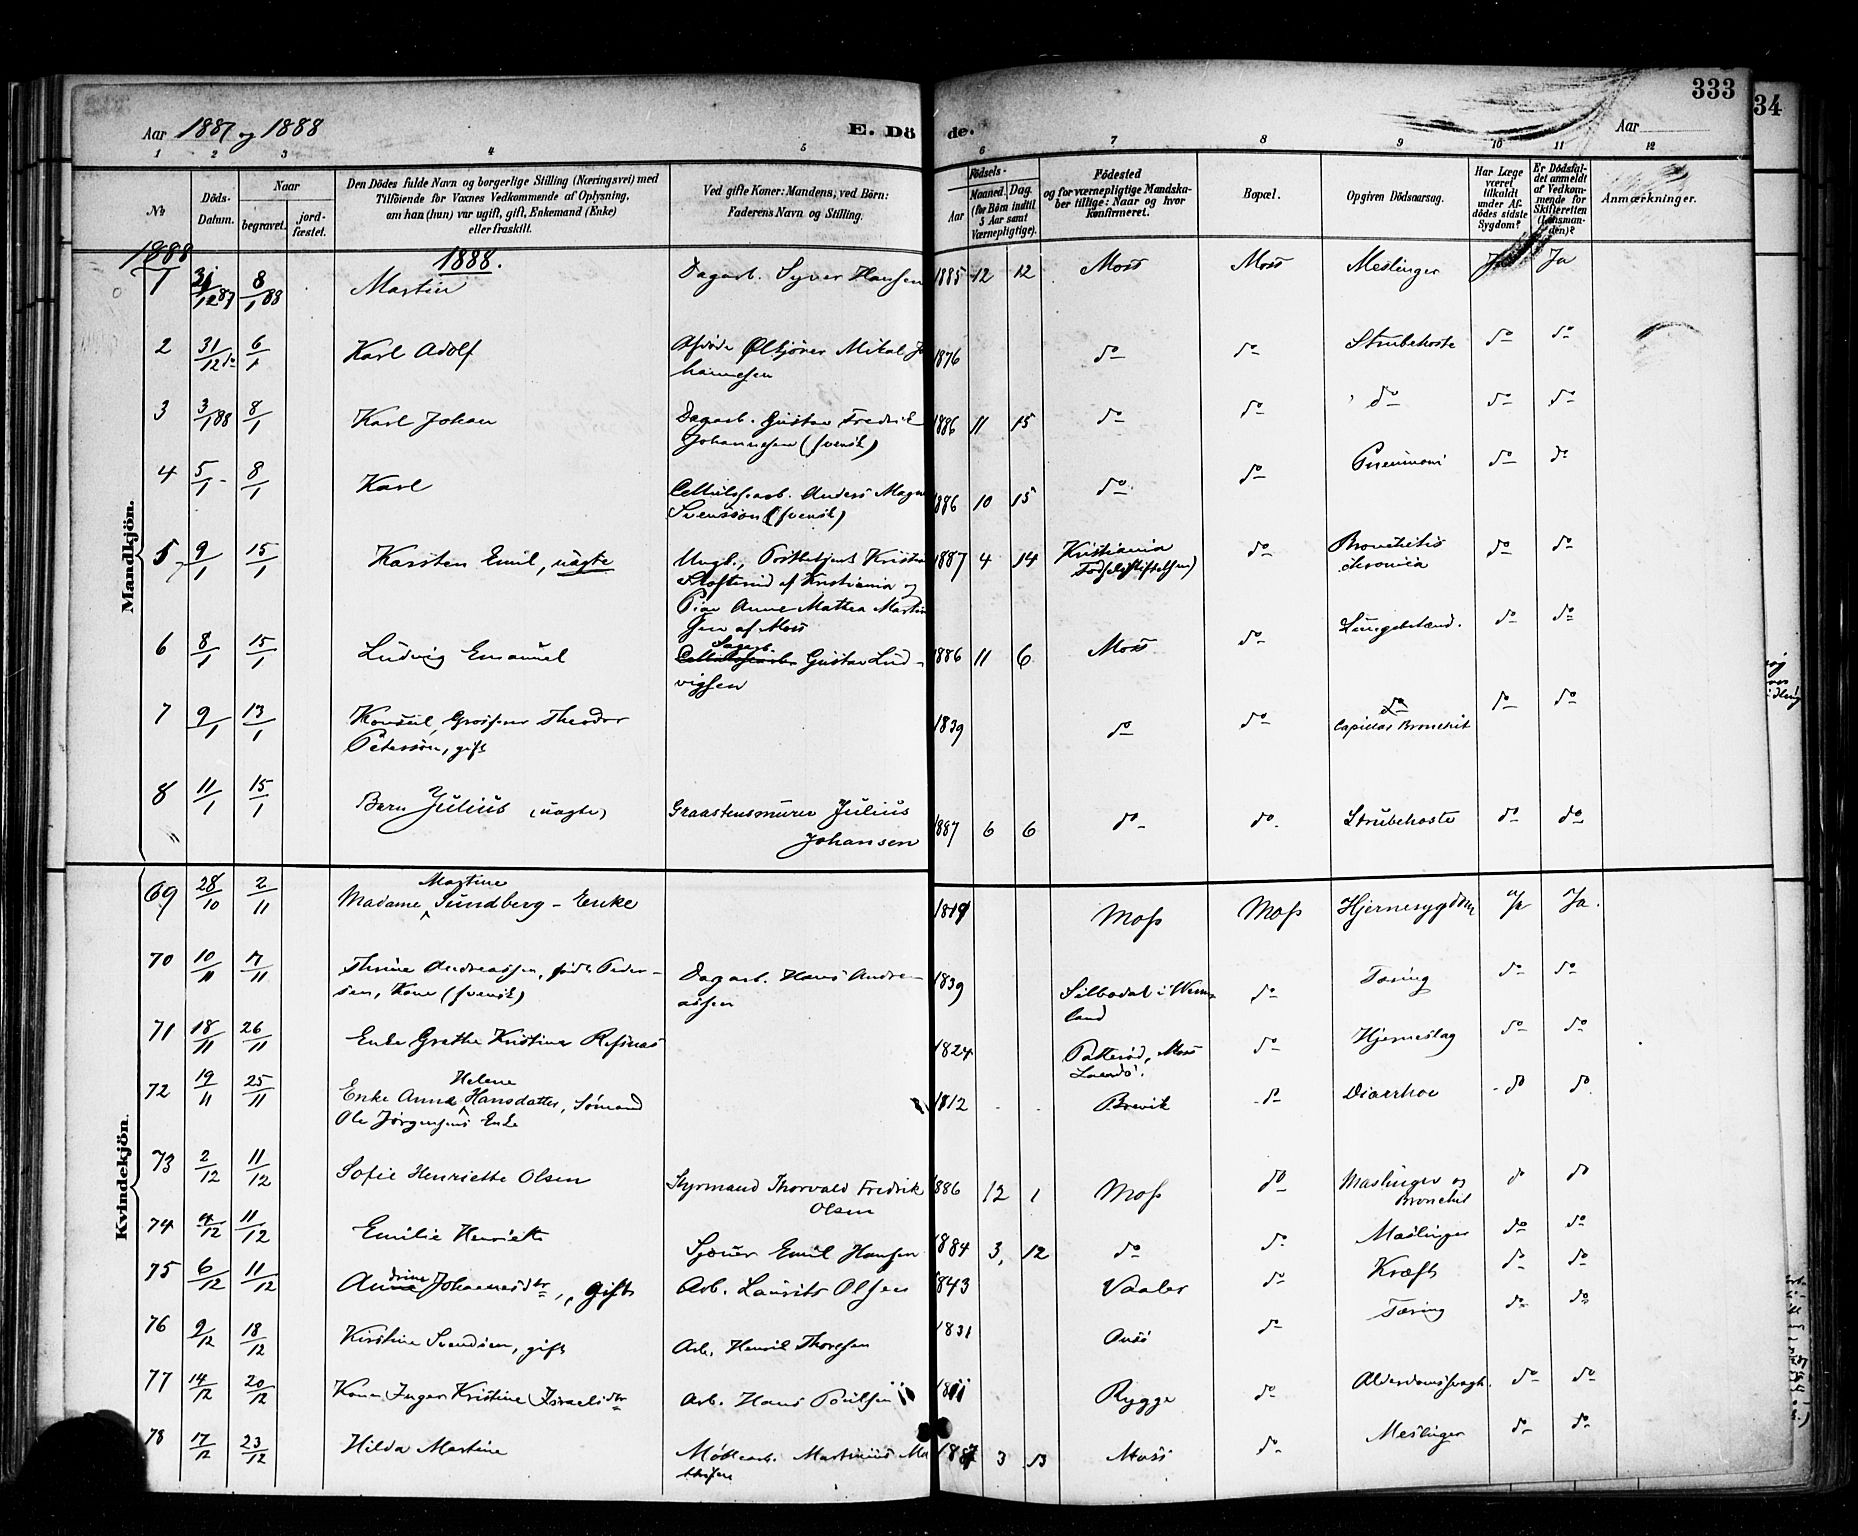 333
34
Aar 1887 og 1888
E. Dö de.
Aar
1 2 3 4 5 6 7 8 9 10 11 12
No
Döds-Datum.
Naar
begravet.
jord-fæstet.
Den Dödes fulde Navn og borgerlige Stilling (Næringsvei) med
Tilföiende for Voxnes Vedkommende af Oplysning,
om han (hun) var ugift, gift, Enkemand (Enke)
eller fraskilt.
Ved gifte Koner: Mandens, ved Börn:
Faderens Navn og Stilling.
Födsels-
Aar
Maaned. Dag.
(for Börn indtil
5 Aar samt
Værnepligtige).
Födested
og for værnepligtige Mandska-
ber tillige: Naar og hvor
konfirmeret.
Bopæl.
Opgiven Dödsaarsag.
Har Læge
været
tilkaldt
under Af-
dödes sidste
Sygdom?
Er Dödsfal-
det anmeldt
af Vedkom-
mende for
Skifteretten
(Lensman-
den)?
Anmærkninger.
Mandkjön.
1888
1888.
1 31/12 87 8/1 88 Martin Dagarb. Syver Hansen 1885 12 12 Moss Moss Meslinger Ja Ja
2 31/12 do 6/1 Karl Adolf Afdøde Ølkjører Mikal Jo
hannesen 1876 do do Strubehoste do do
3 3/1 88 8/1 Karl Johan Dagarb. Gustav Fredrik
Johannesen (svensk) 1886 11 15 do do do do do
4 5/1 - 8/1 Karl Cellulosearb. Anders Magnus
Svensson (svensk) 1886 10 15 do do Pneumoni do do
5 9/1 15/1 Karsten Emil, uægte Ungk., Postbetjent Kristian
af Kristiania og
Pige Anne Mathea Martin
sen af Moss 1887 4 14 Kristiania
Fødselsstiftelsen) do Bronchitis
chronica do do
6 8/1 15/1 Ludvig Emanuel Dagarb.
Cellulosearb. Gustav Lud-
vigsen 1886 11 6 Moss do Lungebetænd. do do
7 9/1 13/1 Konsul, Grosserer Theodor
Peterson, gift 1839 do do do
Capillær Bronchit do do
8 11/1 15/1 Barn Julius (uægte) Graastensmurer Julius
Johansen 1887 6 6 do do Strubehoste do do
Kvindekjön.
69 28/10 2/11 Martine
Madame Sundberg - Enke 1819 Moss Moss Hjernesygdom Ja Ja.
70 10/11 17/11 Thrine Andreassen, født Peder-
sen, Kone (svensk) Dagarb. Hans Andre-
assen 1839 Silbodal i Werm-
land do Tæring do do
71 18/11 26/11 Enke Grethe Kristine Refsnas 1824 Patterød, Moss
Landd. do Hjerneslag do do
72 19/11 25/11 Helene
Enke Anna Hansdatter, Sømand
Ole Jørgensens Enke 1812 Brevik do Diarrhoe do do
73 2/12 11/12 Sofie Henriette Olsen Styrmand Thorvald Fredrik
Olsen 1886 12 1 Moss do Maslinger og
Bronchit do do
74 4/12 11/12 Emilie Henriette Sjøner Emil Hansen 1884 3, 12 do do Maslinger do do
75 6/12 11/12 Andrine Johannesdtr, gift Arb. Laurits Olsen 1843 Vaaler do Kræft do do
76 9/12 18/12 Kirstine Svendsen, gift Arb. Henrik Thoresen 1831 Onsø do Tæring do do
77 14/12 20/12 Kone Inger Kristine Israelsdtr Arb. Hans Poulsen 1811 Rygge do Alderdomssvagh. do do
78 17/12 23/12 Hilda Martine Møllearb. Martinius Ma
thisen 1887 3 13 Moss do Meslinger do do